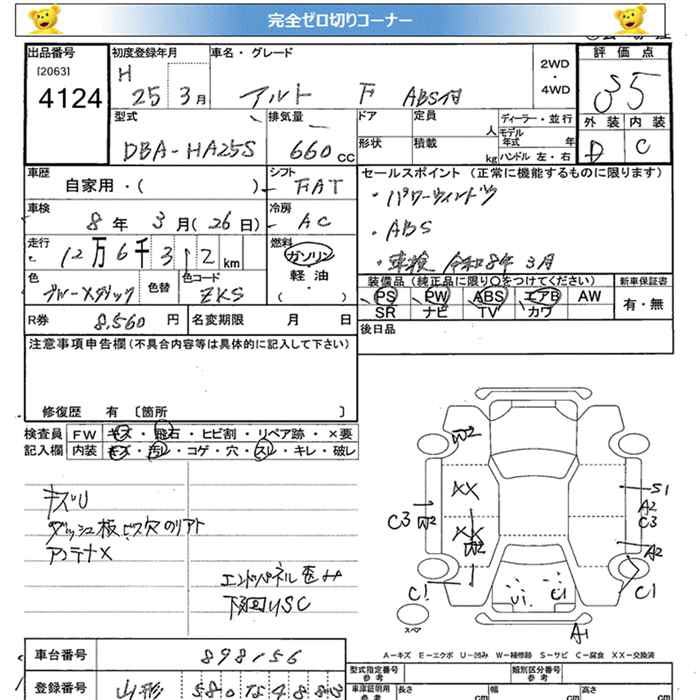 完全ゼロ切りコーナー
出品番号 初度登録年月 車名・グレード 評価点
[2063] H 2WD
4124 25 3月 アルト F ABS付 ・ 35
4WD
型式 排気量 ドア 定員 ディーラー・並行 外装 内装
DBA-HA25S 660cc 人 モデル年式 年 D C
形状 積載 kg ハンドル 左・右
車歴 シフト セールスポイント (正常に機能するものに限ります)
自家用・( ) FAT ・パワーウィンドウ
車検 冷房
8年 3月(26日) AC ・ABS
走行 燃料
12万6千312km ガソリン ・車検 令和8年3月
軽油
( ・ )
色 色替 色コード 装備品(純正品に限り○をつけてください) 新車保証書
ブルーメタリック ZKS PS PW ABS エアB AW 有・無
SR ナビ TV カワ
R券 8,560円 名変期限 月 日 後日品
注意事項申告欄(不具合内容等は具体的に記入して下さい)
修復歴 有 〔箇所 〕
検査員 FW キズ・飛石・ヒビ割・リペア跡・×要
記入欄 内装 キズ・汚レ・コゲ・穴・スレ・キレ・破レ
W2
キズU XX S1
A2
C3 W2 C3
ダッシュ板ビス穴のリアト XX
W2 A2
アンテナX
エンドパネル歪み C1 C1
下回りSC U1 C1
スペア A1
A-キズ E-エクボ U-凹み W-補修跡 S-サビ C-腐食 XX-交換済
車台番号 898156 型式指定番号 類別区分番号
参考 参考
登録番号 山形 580 車庫証明用 長さ 幅 高さ
参考 cm cm cm